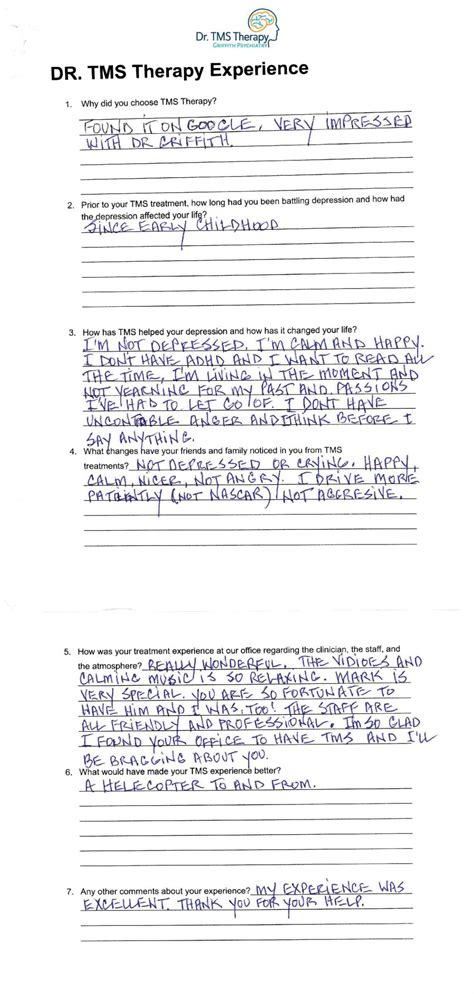 Dr. TMS Therapy
GRIFFITH PSYCHIATRY
DR. TMS Therapy Experience
1. Why did you choose TMS Therapy?
FOUND IT ON GOOGLE, VERY IMPRESSED
WITH DR GRIFFITH.
2. Prior to your TMS treatment, how long had you been battling depression and how had
the depression affected your life?
SINCE EARLY CHILDHOOD
3. How has TMS helped your depression and how has it changed your life?
I'M NOT DEPRESSED. I'M CALM AND HAPPY.
I DONT HAVE ADHD AND I WANT TO READ ALL
THE TIME, I'M LIVING IN THE MOMENT AND
NOT YEARNING FOR MY PAST AND PASSIONS
I'VE HAD TO LET GO OF. I DONT HAVE
UNCONTABLE ANGER AND THINK BEFORE I
SAY ANYTHING.
4. What changes have your friends and family noticed in you from TMS
treatments? NOT DEPRESSED OR CRYING. HAPPY,
CALM, NICER, NOT ANGRY. I DRIVE MORE
PATRINTLY (NOT NASCAR) NOT AGGRESIVE.
5. How was your treatment experience at our office regarding the clinician, the staff, and
the atmosphere? REALLY WONDERFUL. THE VIDIOES AND
CALMING MUSIC IS SO RELAXING. MARK IS
VERY SPECIAL. YOU ARE SO FORTUNATE TO
HAVE HIM AND I WAS, TOO! THE STAFF ARE
ALL FRIENDLY AND PROFESSIONAL. I'm SO GLAD
I FOUND YOUR OFFICE TO HAVE TMS AND I'LL
BE BRAGGING ABOUT YOU.
6. What would have made your TMS experience better?
A HELECOPTER TO AND FROM.
7. Any other comments about your experience? MY EXPERIENCE WAS
EXCELLENT. THANK YOU FOR YOUR HELP.